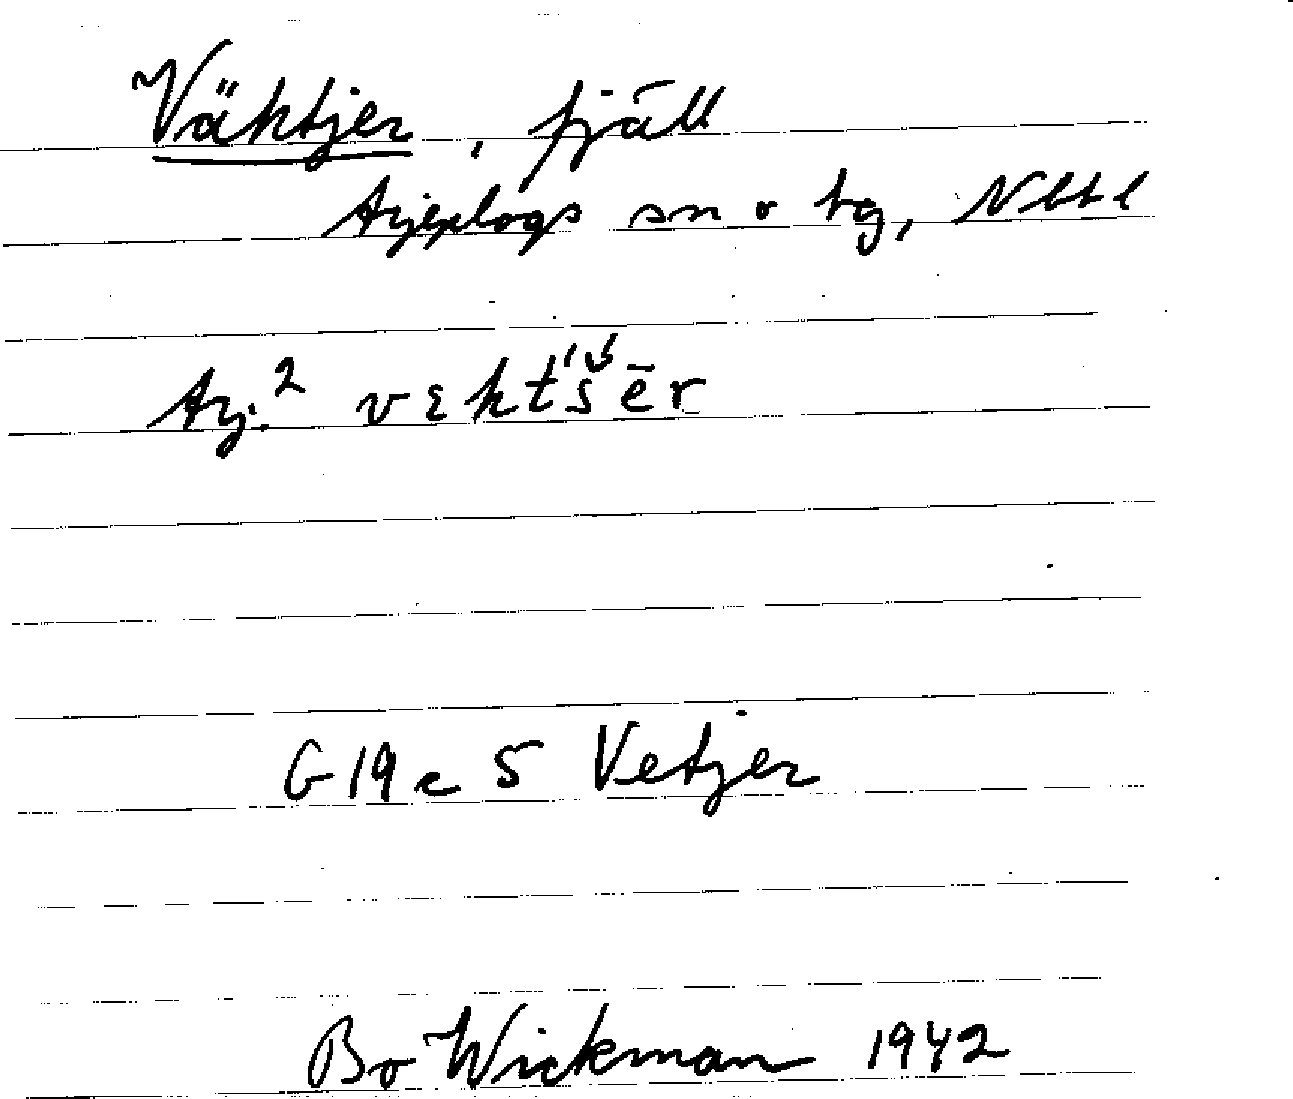 Väktjer, fjäll
Arjeplogs sn o tg, Nbtl
Arj.² vεkt́š́ēr
G 19 c 5 Vetjer
Bo Wickman 1942